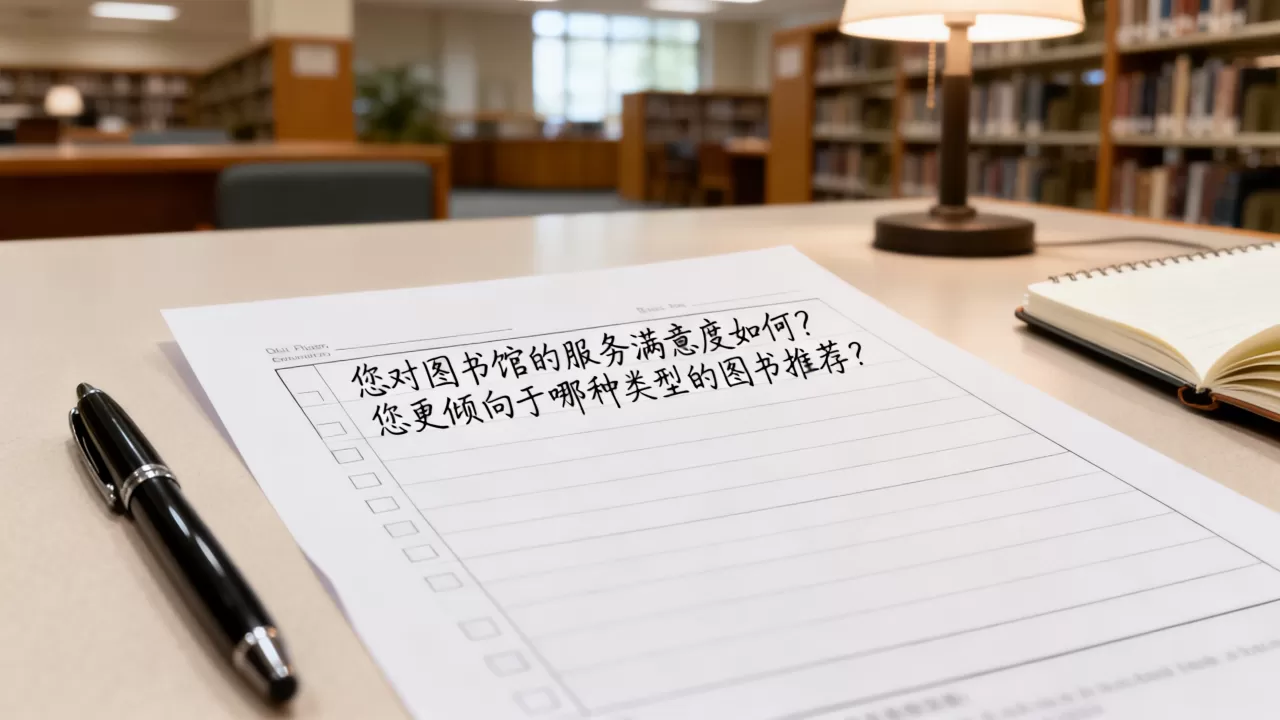 您对图书馆的服务满意度如何？
您更倾向于哪种类型的图书推荐？